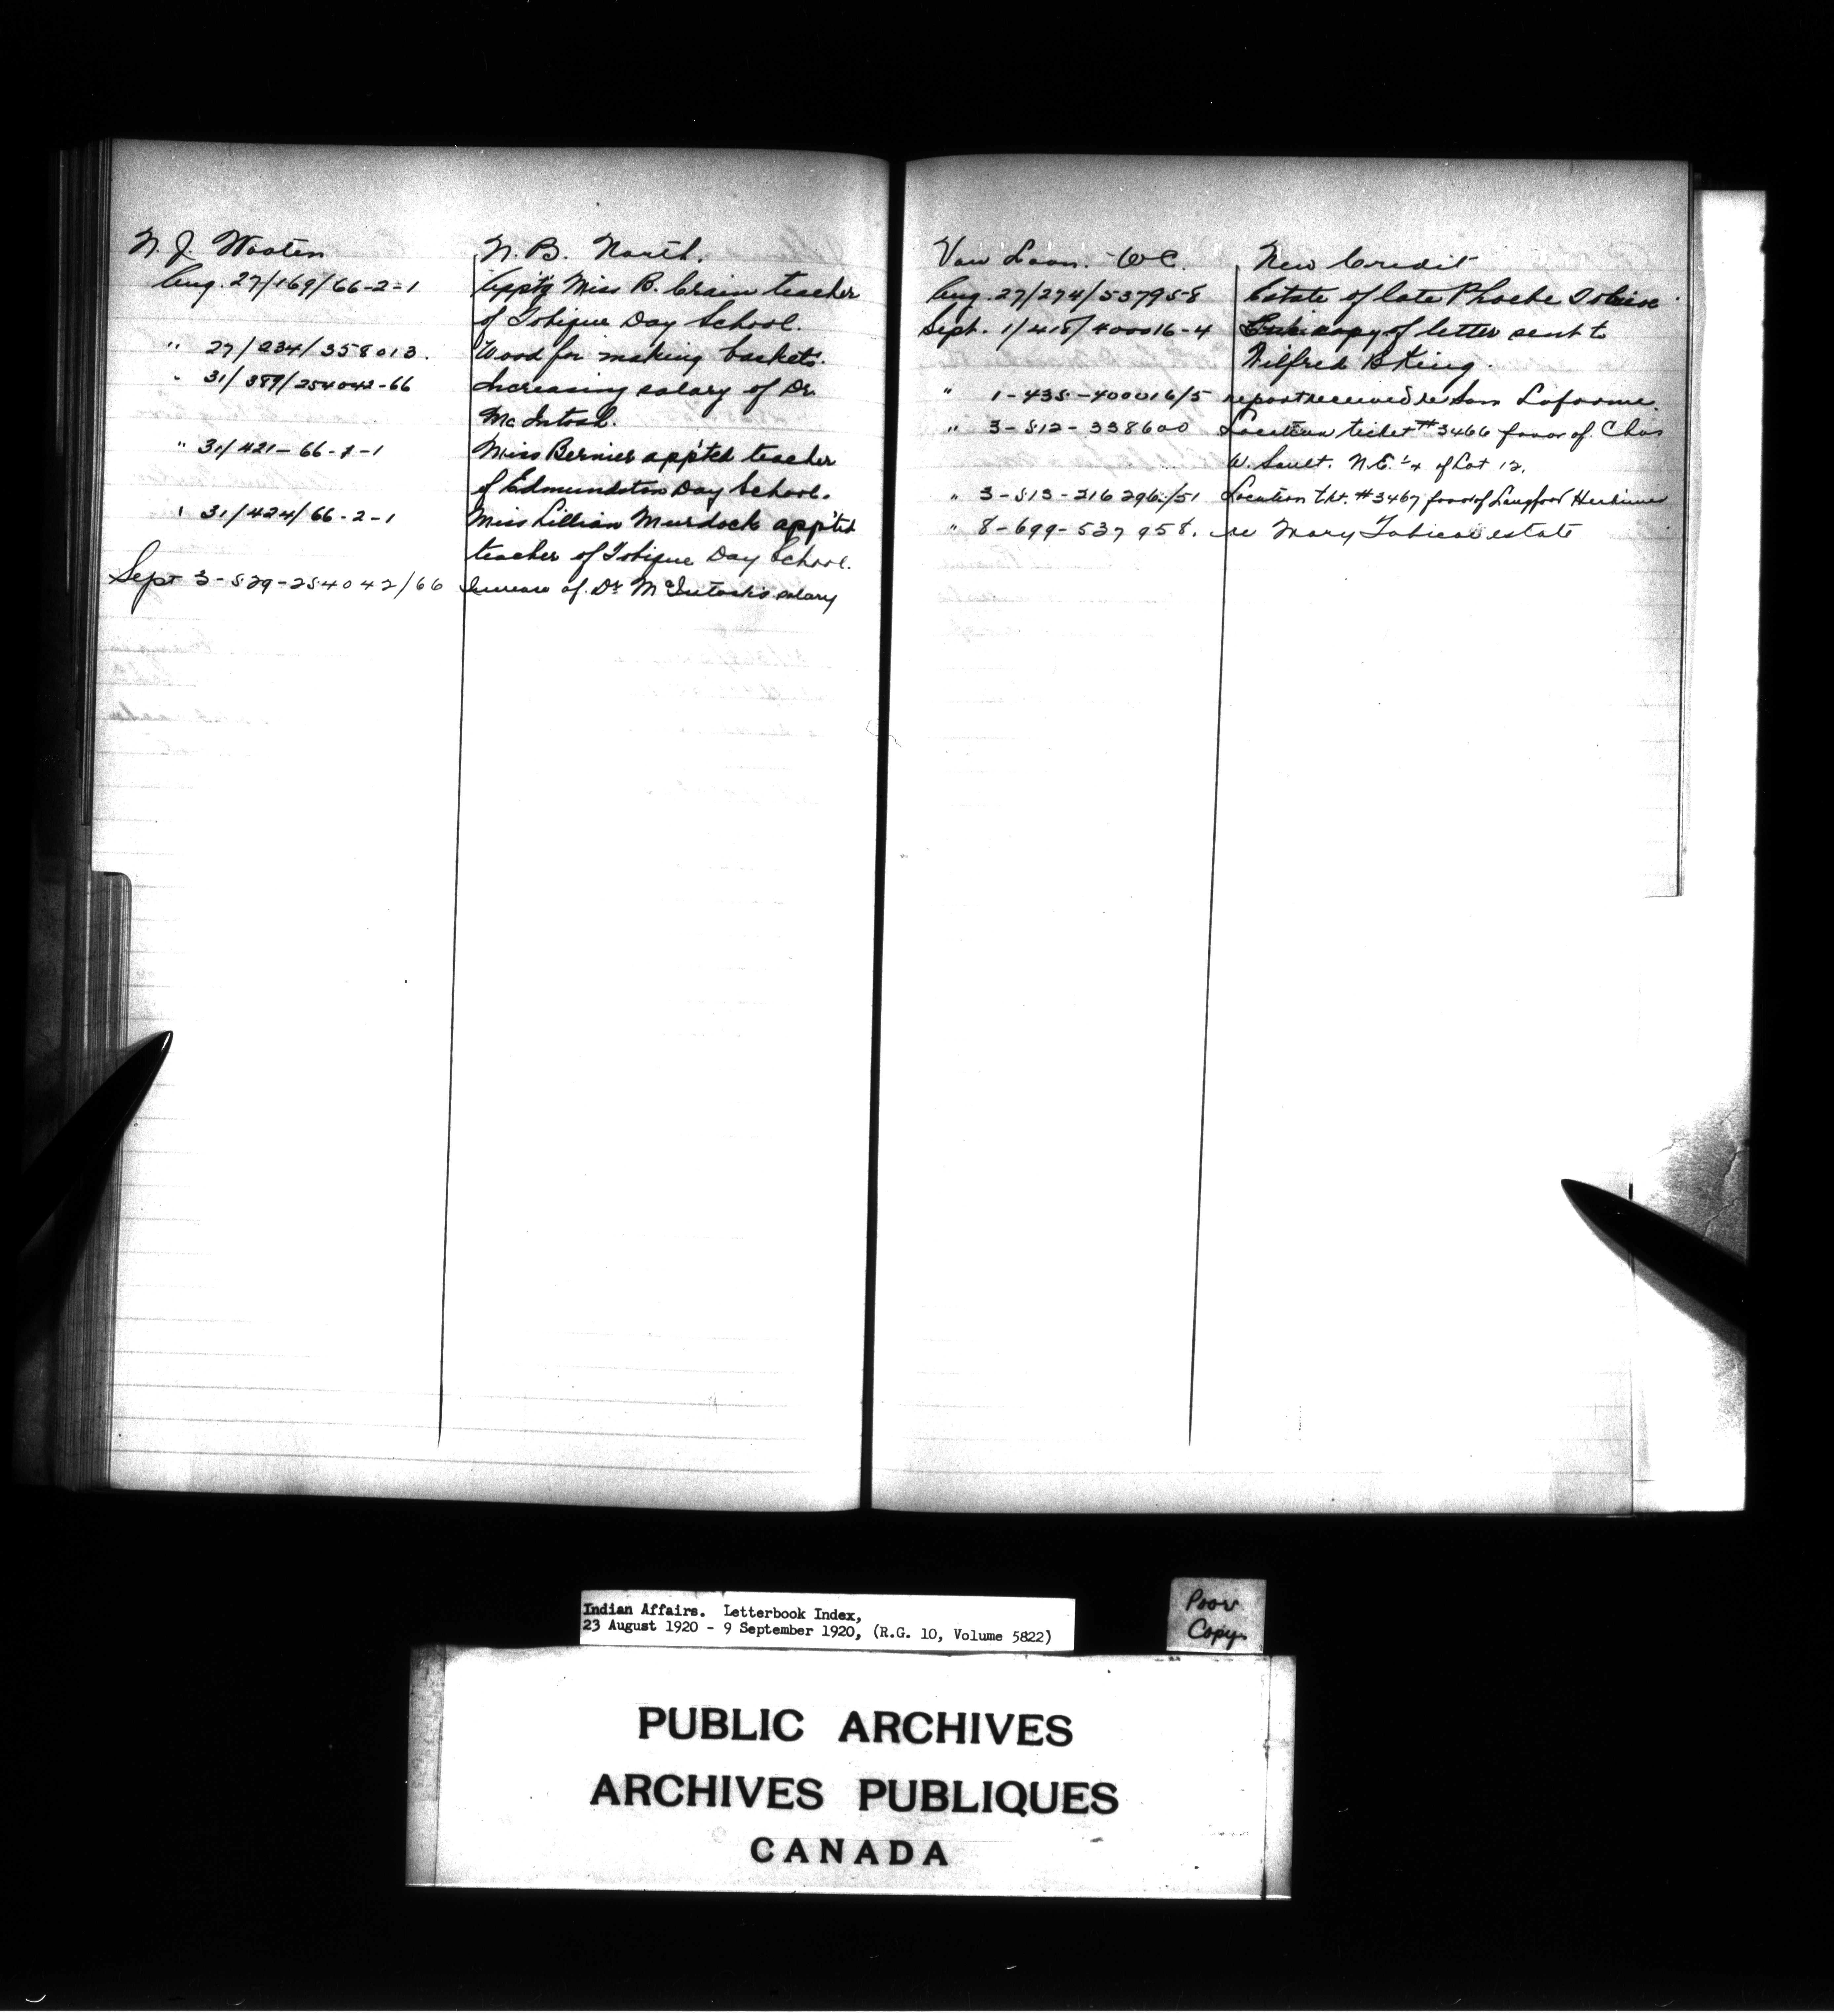 N. J. Wooten
N. B. North.
Aug. 27/169/66-2-1
App't'g Miss B. Crain teacher
of Tobique Day School.
" 27/234/358013.
Wood for making baskets.
" 31/389/254042-66
Increasing salary of Dr.
McIntosh.
" 31/421-66-2-1
Miss Bernier app'ted teacher
of Edmundston Day School.
" 31/424/66-2-1
Miss Lillian Murdock app'ted
teacher of Tobique Day School.
Sept 3-529-254042/66
Increase of Dr McIntosh's salary
Van Loon. W C.
New Credit
Aug. 27/274/537958
Estate of late Phoebe Tobicoe
Sept. 1/418/400016-4
copy of letter sent to
Wilfred B King.
" 1-435-400016/5
report received re Sam Laforme.
" 3-512-338600
Location ticket #3466 favor of Chas
W. Sault. N.E. ¼ of Lot 12.
" 3-513-216296/51
Location tkt. #3467 favor of Langford Herkimer
" 8-699-537958.
re Mary Tobicoe estate
Indian Affairs. Letterbook Index,
23 August 1920 - 9 September 1920, (R.G. 10, Volume 5822)
Poor
Copy.
PUBLIC ARCHIVES
ARCHIVES PUBLIQUES
CANADA